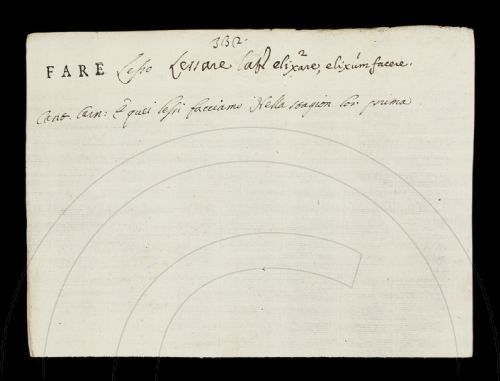 332.
FARE Lesso Lessare lat. elixare, elixum facere.
Cant. Carn: E quei lessi facciamo Nella stagion lor prima